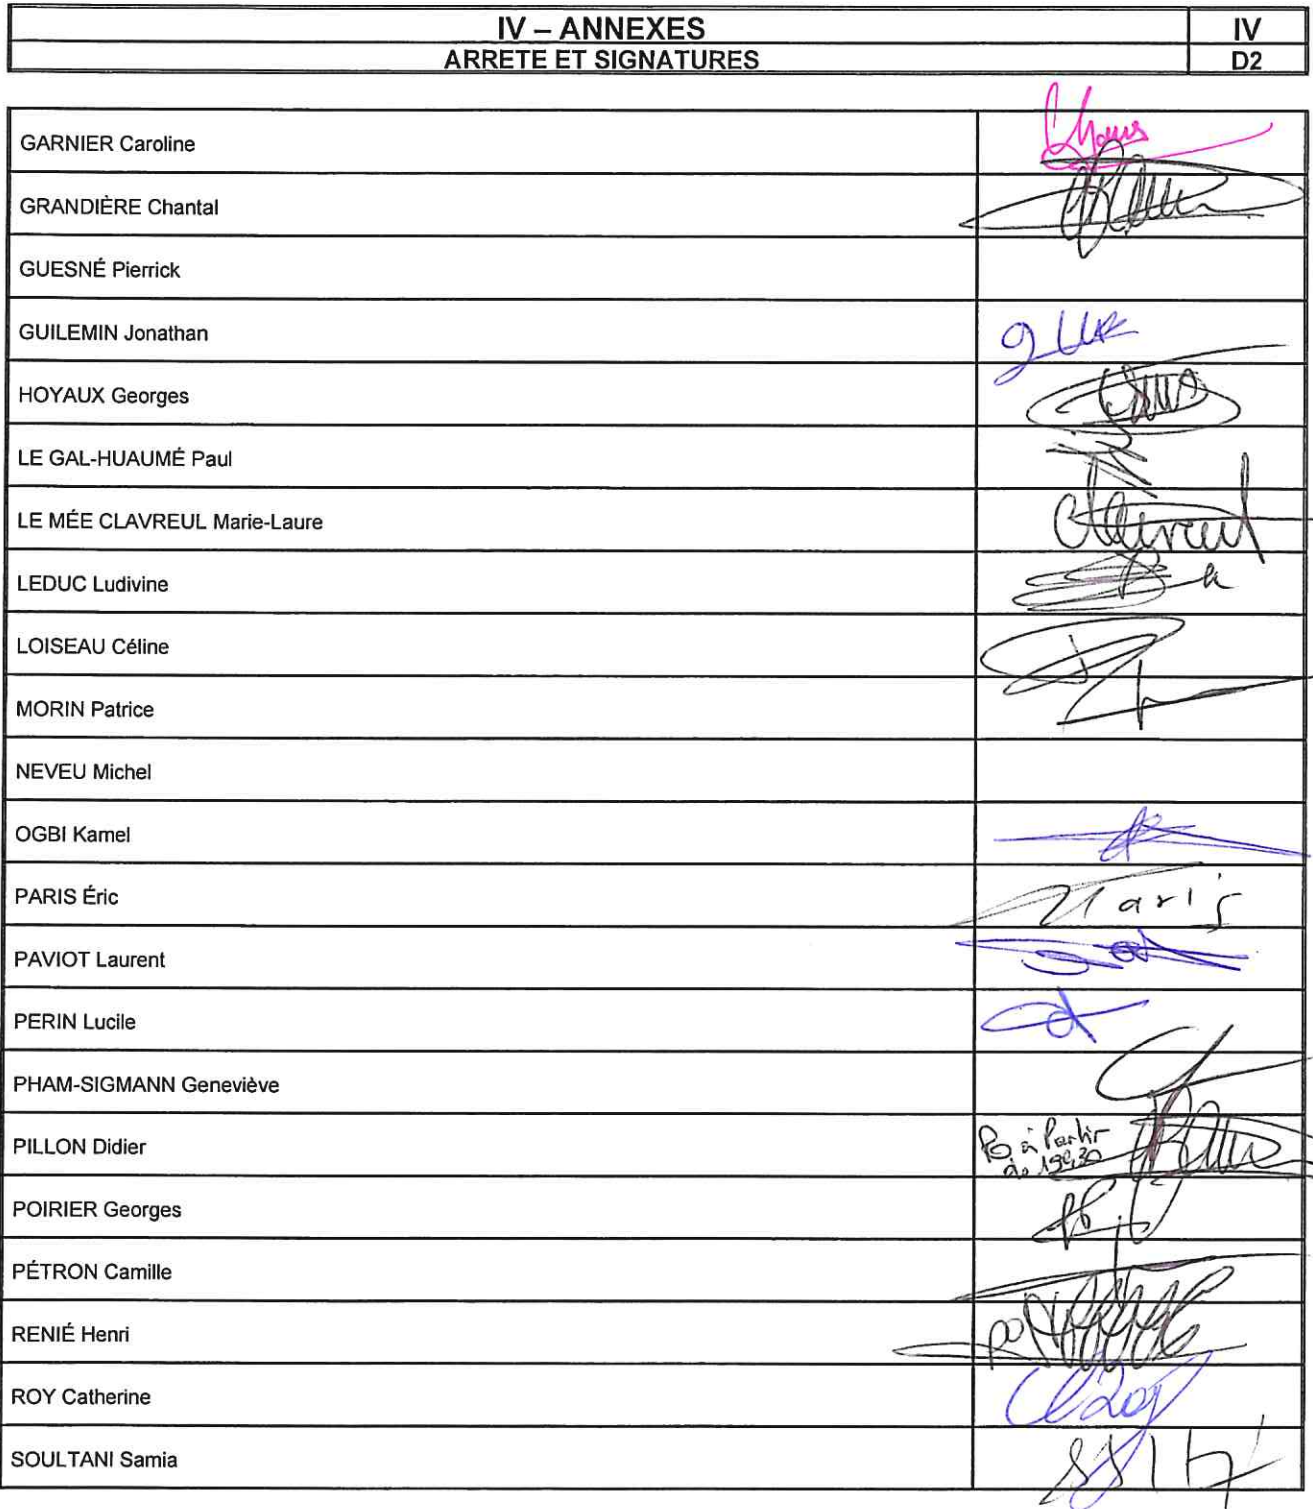 IV – ANNEXES
IV
ARRETE ET SIGNATURES
D2
GARNIER Caroline
GRANDIÈRE Chantal
GUESNÉ Pierrick
GUILEMIN Jonathan
HOYAUX Georges
LE GAL-HUAUMÉ Paul
LE MÉE CLAVREUL Marie-Laure
Clavreul
LEDUC Ludivine
LOISEAU Céline
MORIN Patrice
NEVEU Michel
OGBI Kamel
PARIS Éric
Paris
PAVIOT Laurent
PERIN Lucile
PHAM-SIGMANN Geneviève
PILLON Didier
à Partir
POIRIER Georges
PÉTRON Camille
RENIÉ Henri
ROY Catherine
Roy
SOULTANI Samia